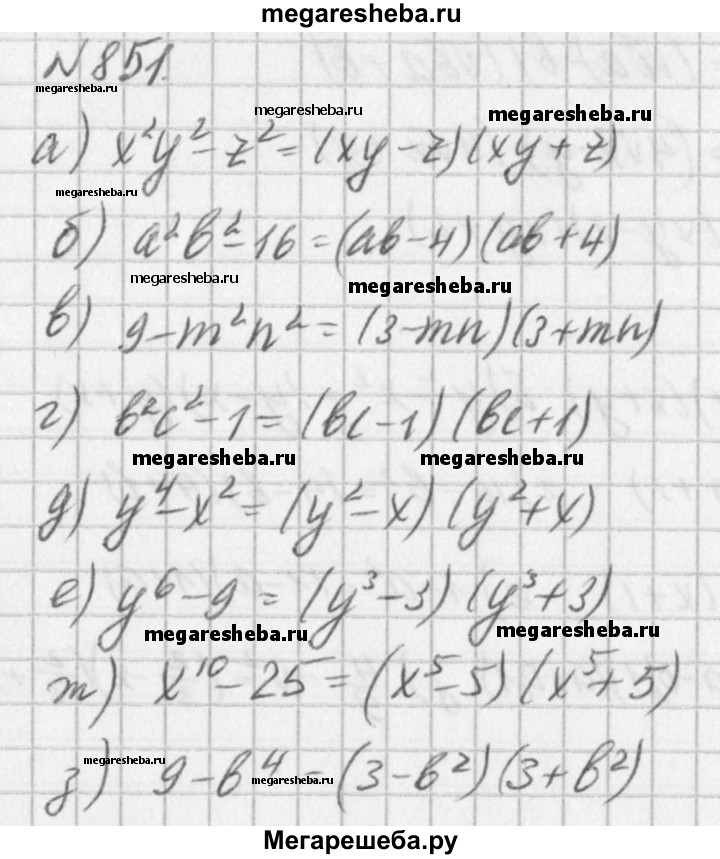 megaresheba.ru
N 851.
megaresheba.ru
megaresheba.ru
megaresheba.ru
а) x²y² - z² = (xy - z)(xy + z)
megaresheba.ru
б) a²b² - 16 = (ab - 4)(ab + 4)
megaresheba.ru
megaresheba.ru
в) 9 - m²n² = (3 - mn)(3 + mn)
г) b²c² - 1 = (bc - 1)(bc + 1)
megaresheba.ru
megaresheba.ru
д) y⁴ - x² = (y² - x)(y² + x)
е) y⁶ - 9 = (y³ - 3)(y³ + 3)
megaresheba.ru
megaresheba.ru
ж) x¹⁰ - 25 = (x⁵ - 5)(x⁵ + 5)
megaresheba.ru
з) 9 - b⁴ = (3 - b²)(3 + b²)
megaresheba.ru
Мегарешеба.ру